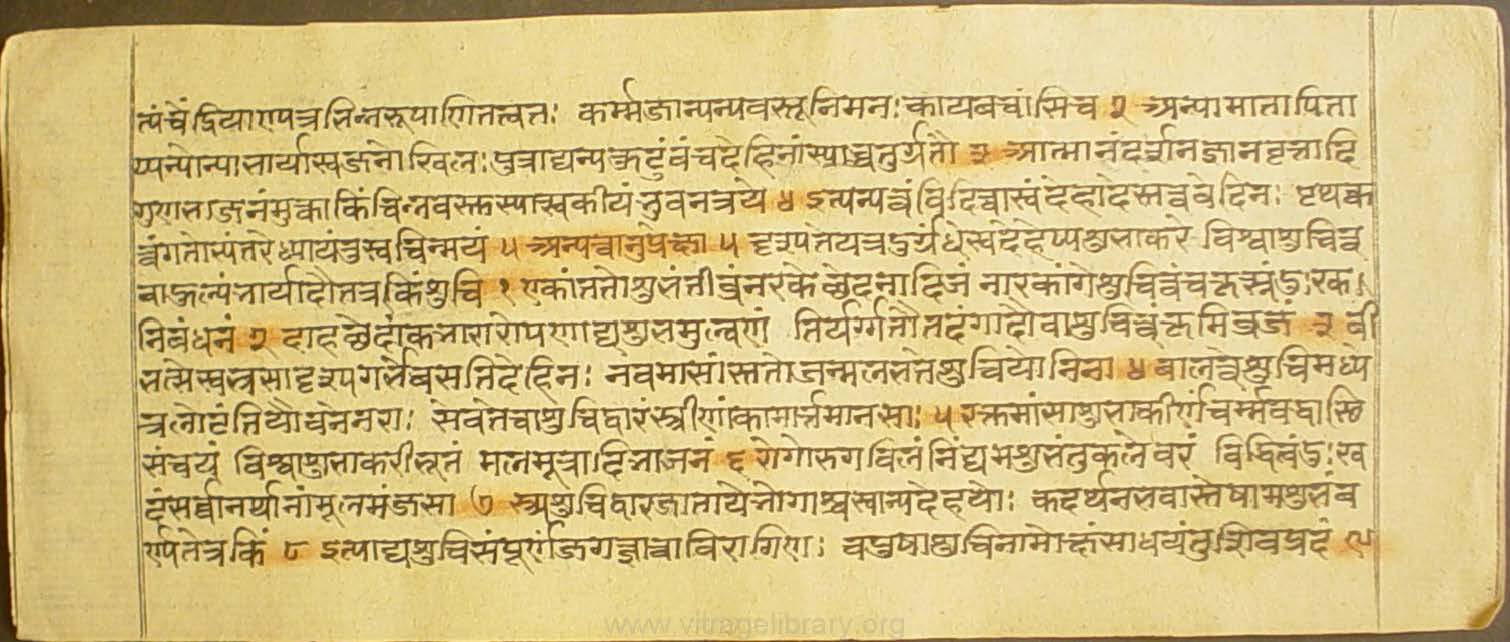 त्पंचेंद्रियाण्यत्रभिन्नरूपाणितत्वतः कर्म्मजान्यन्यवस्तूनिमनःकायवचांसिच २ अन्यामातापिता
प्यन्योन्याभार्यास्वजनोखिलः पुत्राद्यन्यकुटुंबंचदेहिनांस्याच्चतुर्गतौ ३ आत्मानंदर्शनज्ञानवृत्तादि
गुणभाजनंमुक्त्वाकिंचिन्नवस्तुस्यात्स्वकीयंभुवनत्रये ४ इत्यन्यत्वंविदित्वास्वंदेहादेस्तत्ववेदिनः पृथक्कृ
त्वंगतोभ्यंतरेध्यायंतुस्वचिन्मयं ५ अन्यत्वानुप्रेक्षा ५ दृश्यतेयत्रदुर्गंधेस्वदेहेप्यशुभाकरे विश्वाशुचित्व
बाहुल्यंभार्यादौतत्रकिंशुचि १ एकांततोशुभंतीव्रंनरकेछेदनादिजं नारकांगेशुचित्वंचकृत्स्नंदुःरक
निबंधनं २ दाहछेदांकभारारोपणाद्यशुभमुल्वणं तिर्यग्गतौतदंगादौवाशुचित्वंकृमिव्रजं ३ बी
भत्सेस्वभ्रसादृश्यगर्भेवसंतिदेहिनः नवमासांस्ततोजन्मलभंतेशुचियोनिना ४ बालत्वेशुचिमध्ये
त्रलोटंतियौवनेनराः सेवंतेचाशुचिद्वारंस्त्रीणांकामार्त्तमानसाः ५ रक्तमांसाशुभाकीर्णंचर्म्मबद्धास्थि
संचयं विश्वाशुभाकरीभूतं मलमूत्रादिभाजनं ६ रोगोरुगविलंनिंद्यमशुभंतुकलेवरं विद्धित्वंदुःख
दंसर्वानर्थानांमूलमंजसा ७ स्त्र्यशुचिद्वारजातायेभोगाश्चस्वान्यदेहयोः कदर्थनभवास्तेषामशुभंव
र्ण्यतेत्रकिं ८ इत्याद्यशुचिसंपूर्णंजगज्ज्ञात्वाविरागिणः वपुषाशुचिनामोक्षंसाधयंतुशिवप्रदं ९
www.vitragelibrary.org